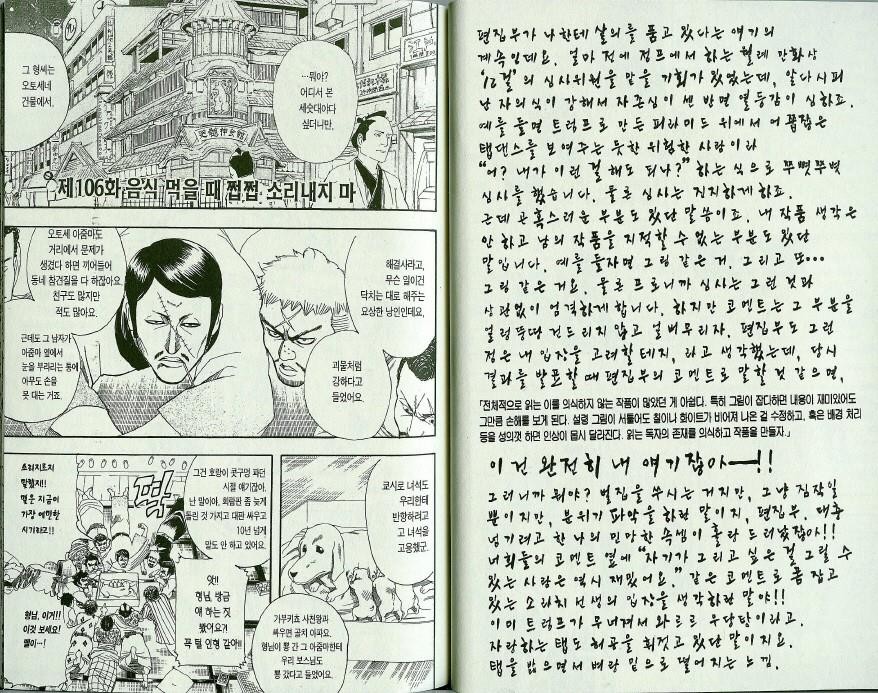 그 형씨는
오토세네
건물에서.
…뭐야?
어디서 본
세숫대야다
싶더니만,
제106화 음식 먹을 때 쩝쩝 소리내지 마
오토세 아줌마도
거리에서 문제가
생겼다 하면 끼어들어
동네 참견질을 다 하잖아요.
친구도 많지만
적도 많아요.
근데도 그 남자가
아줌마 옆에서
눈을 부라리는 통에
아무도 손을
못 대는 거죠.
해결사라고,
무슨 일이건
닥치는 대로 해주는
요상한 낭인인데요.
괴물처럼
강하다고
들었어요.
소리지르지
말랬지!!
멸은 지금이
가장 예민한
시기라고!!
그건 호랑이 콧구멍 파던
시절 얘기잖아.
난 말이야, 회람판 좀 늦게
돌린 것 가지고 대판 싸우고
10년 넘게
말도 안 하고 있어요.
앗!!
형님, 방금
얘 하는 짓
봤어요?!
꼭 털 인형 같아!!
형님, 이거!!
이것 보세요!
멸이…!
쿄시로 녀석도
우리한테
반항하려고
고 녀석을
고용했군.
가부키쵸 사천왕과
싸우면 골치 아파요.
형님이 뿅 간 그 아줌마한테
우리 보스님도
뿅 갔다고 들었어요.
편집부가 나한테 살의를 품고 있다는 얘기의
계속인데요. 얼마 전에 점프에서 하는 월례 만화상
'12걸'의 심사위원을 맡을 기회가 있었는데, 알다시피
난 자의식이 강해서 자존심이 센 반면 열등감이 심하죠.
예를 들면 트럼프로 만든 피라미드 위에서 어쭙잖은
탭댄스를 보여주는 듯한 위험한 사람이라
"어? 내가 이런 걸 해도 되나?" 하는 식으로 쭈뼛쭈뼛
심사를 했습니다. 물론 심사는 진지하게 하죠.
근데 곤혹스러운 부분도 있단 말씀이죠. 내 작품 생각은
안 하고 남의 작품을 지적할 수 없는 부분도 있단
말입니다. 예를 들자면 그림 같은 거. 그리고 또…
그림 같은 거요. 물론 프로니까 심사는 그런 것과
상관없이 엄격하게 합니다. 하지만 코멘트는 그 부분을
얼렁뚱땅 건드리지 않고 얼버무리자. 편집부도 그런
점은 내 입장을 고려할 테지, 라고 생각했는데, 당시
결과를 발표할 때 편집부의 코멘트로 말할 것 같으면,
「전체적으로 읽는 이를 의식하지 않는 작품이 많았던 게 아쉽다. 특히 그림이 잡다하면 내용이 재미있어도
그만큼 손해를 보게 된다. 설령 그림이 서툴어도 칠이나 화이트가 비어져 나온 걸 수정하고, 혹은 배경 처리
등을 성의껏 하면 인상이 몹시 달라진다. 읽는 독자의 존재를 의식하고 작품을 만들자.」
이건 완전히 내 얘기잖아──!!
그러니까 뭐야? 벌집을 쑤시는 거지만, 그냥 짐작일
뿐이지만, 분위기 파악을 하란 말이지, 편집부. 대충
넘기려고 한 나의 민망한 속셈이 홀랑 드러났잖아!!
너희들의 코멘트 옆에 "자기가 그리고 싶은 걸 그릴 수
있는 사람은 역시 재밌어요." 같은 코멘트로 폼 잡고
있는 소라치 선생의 입장을 생각하란 말야!!
이미 트럼프가 무너져서 와르르 우당탕이라고.
자랑하는 탭도 허공을 휘젓고 있단 말이지요.
탭을 밟으면서 벼랑 밑으로 떨어지는 느낌.